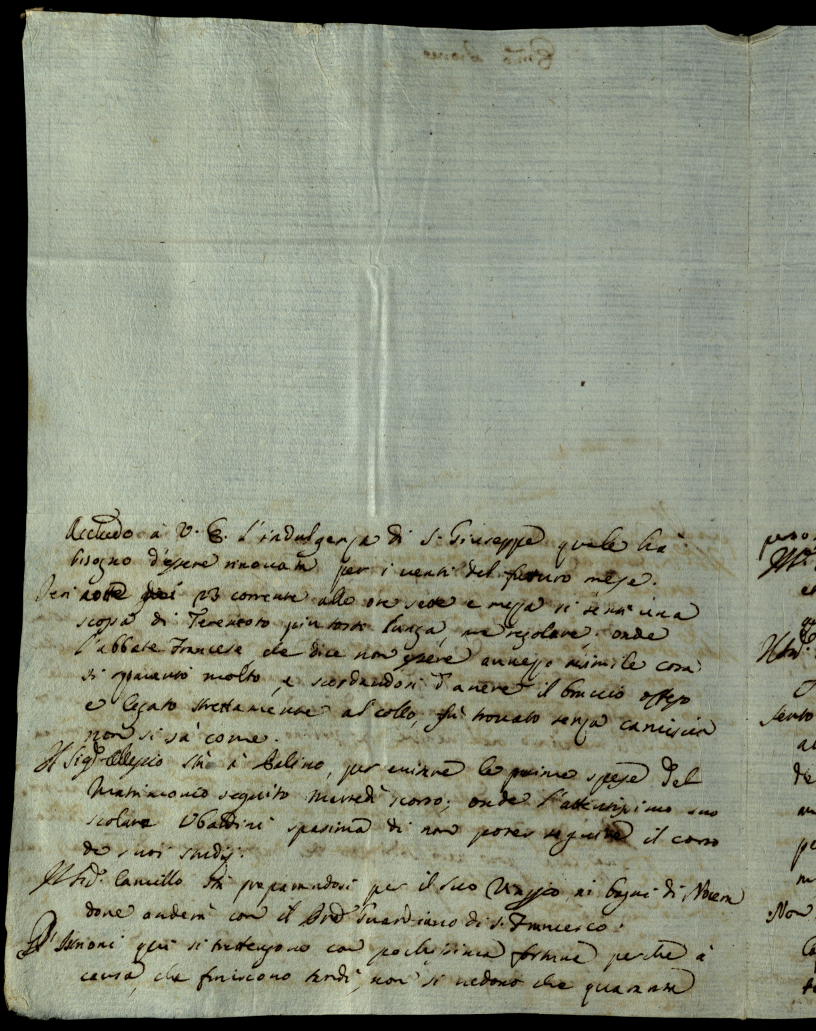 Accludo à V. E. l'indulgenza di S. Giuseppe quale hà
bisogno d'essere rinovata per i venti del futuro mese.
Jeri notte 23 corrente alle ore sette e mezza si sentì una
scossa di Teremoto più tosto lunga, mà regolare: onde
l'abbate Francese che dice non essere avvezzo à simile cosa
si spaventò molto, e scordandosi d'avere il braccio offeso
e legato strettamente al collo, fù trovato senza camiscia
non si sà come.
Il Sig.r Alessio stà à Salino, per evitare le prime spese del
Matrimonio seguito Mercedì scorso; onde l'attentissimo suo
scolare Ubaldini spasima di non poter seguire il corso
de suoi studj.
Il Sig.r Camillo stà preparandosi per il suo Viaggio ai bagni di Nocera
dove anderà con il Prd.e Guardiano di S. Francesco.
qui si trattengono con pochissima fortuna perche à
causa, che finiscono tardi, non si vedono che quaranta